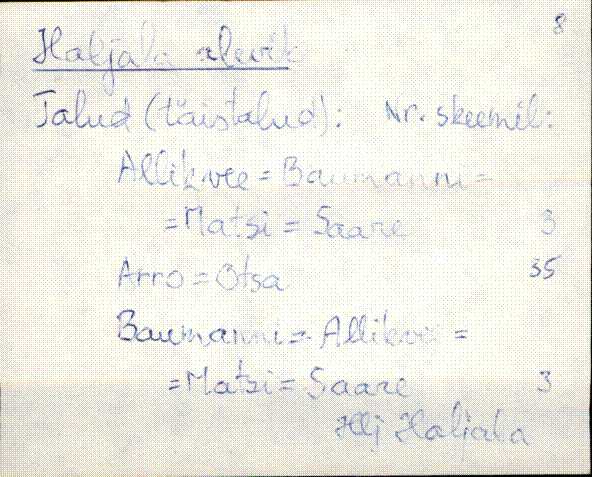 8
Haljala alevik
Talud (täistalud): Nr. skeemil:
Allikvee = Baumanni =
= Matsi = Saare 3
Arro = Otsa 35
Baumanni = Allikvee =
= Matsi = Saare 3
Hlj Haljala